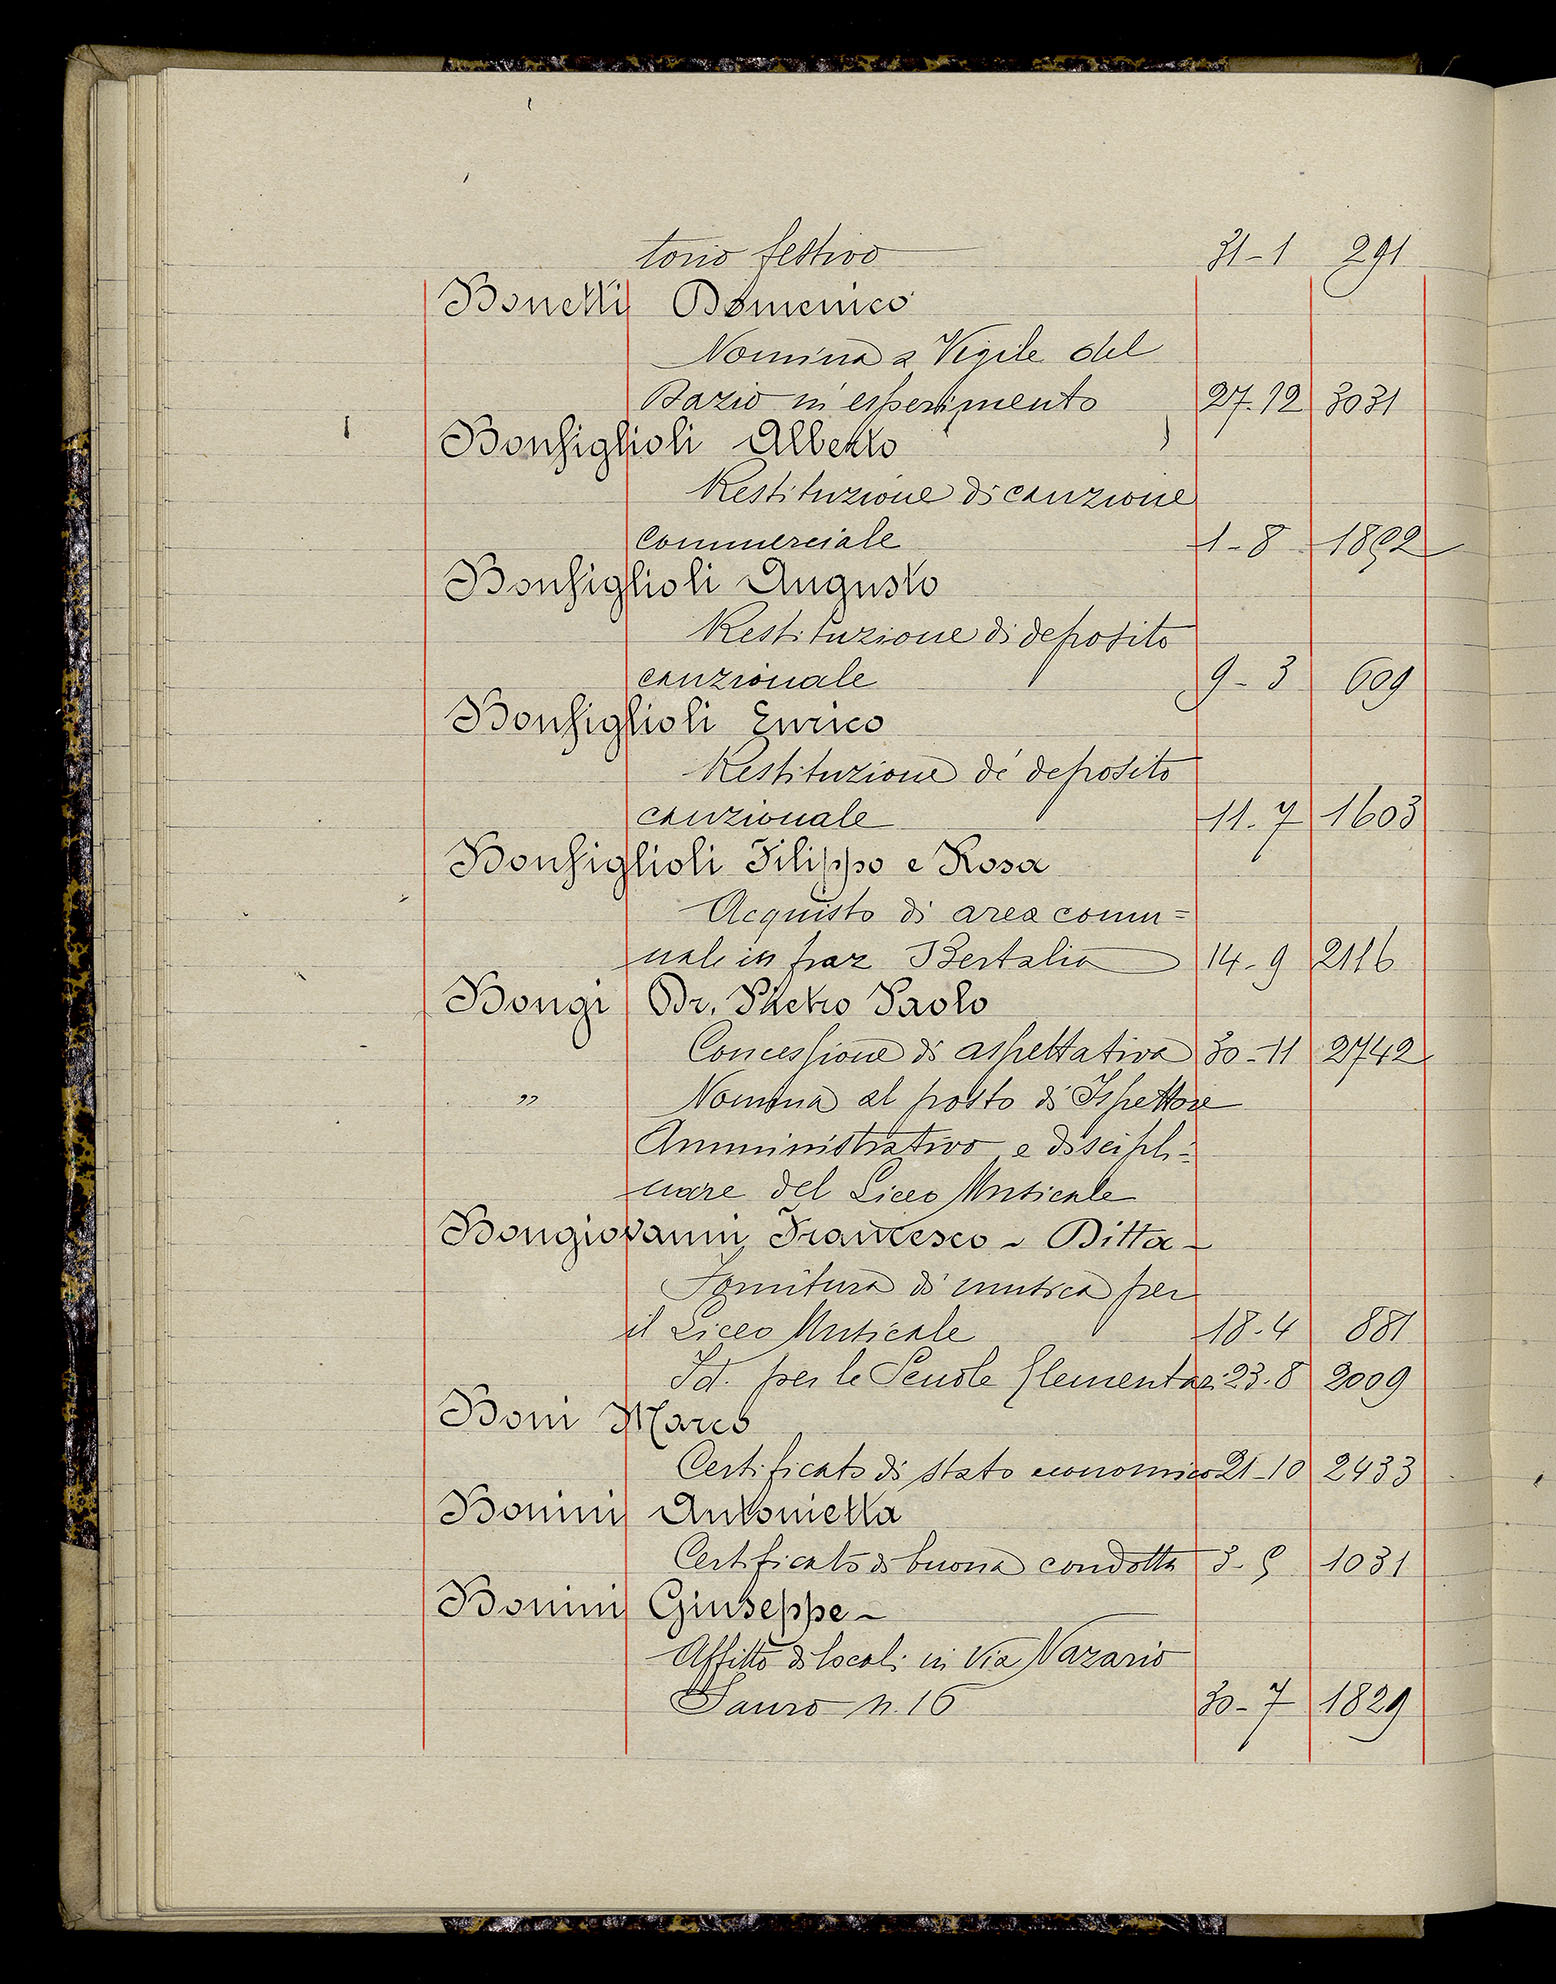 torio festivo 31-1 291
Bonetti Domenico
Nomina a Vigile del
Dazio in esperimento 27.12 3031
Bonfiglioli Alberto
Restituzione di cauzione
commerciale 1-8 1852
Bonfiglioli Augusto
Restituzione di deposito
cauzionale 9-3 609
Bonfiglioli Enrico
Restituzione di deposito
cauzionale 11.7 1603
Bonfiglioli Filippo e Rosa
Acquisto di area comu=
nale in fraz Bertalia 14-9 2116
Bongi Dr. Pietro Paolo
Concessione di aspettativa 30-11 2742
" Nomina al posto di Ispettore
Amministrativo e discipli=
nare del Liceo Musicale
Bongiovanni Francesco - Ditta -
Fornitura di musica per
il Liceo Musicale 18.4 881
Id. per le Scuole Elementari 23.8 2009
Boni Marco
Certificato di stato economico 21-10 2433
Bonini Antonietta
Certificato di buona condotta 3-5 1031
Bonini Giuseppe -
Affitto di locali in Via Nazario
Sauro n. 16 30-7 1829